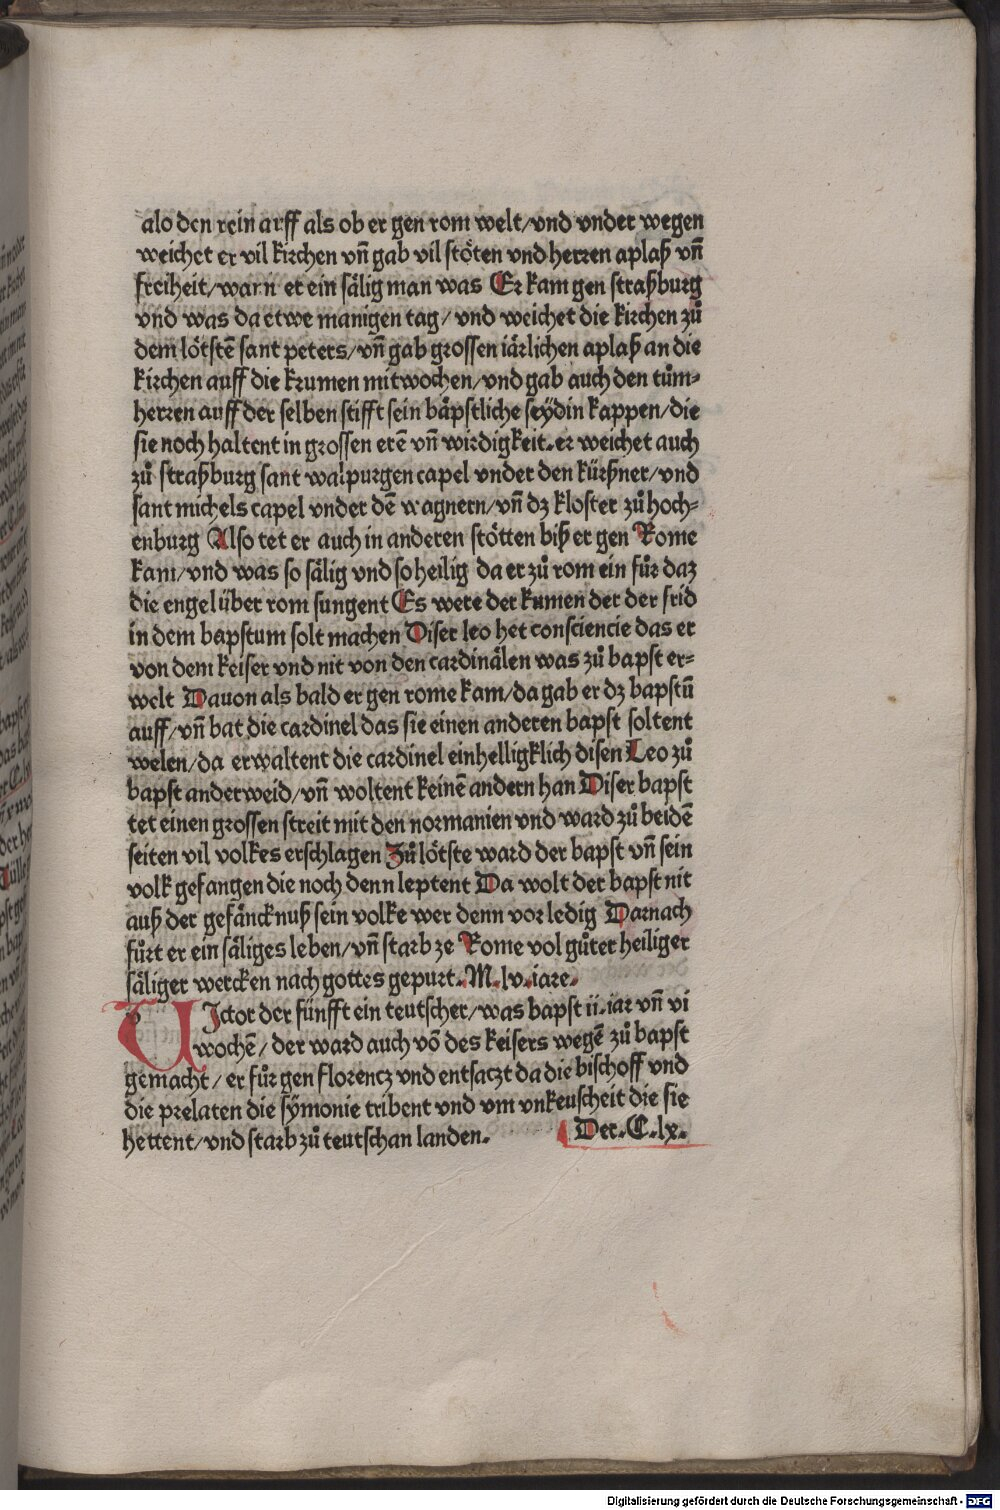 alo den rein arff als ob er gen rom welt/vnd vnder wegen
weichet er vil kirchen vñ gab vil stöten vnd herren aplaß vñ
freiheit/wann er ein sälig man was Er kam gen straßburg
vnd was da etwe manigen tag/vnd weichet die kirchen zů
dem lötstē sant peters/vñ gab grossen iärlichen aplaß an die
kirchen auff die krumen mitwochen/vnd gab auch den tům⸗
herren auff der selben stifft sein bäpstliche seÿdin kappen/die
sie noch haltent in grossen erē vñ wirdigkeit.er weichet auch
zů straßburg sant walpurgen capel vnder den kürßner/vnd
sant michels capel vnder dē wagnern/vñ dz kloster zů hoch⸗
enburg Also tet er auch in anderen stötten biß er gen Rome
kam/vnd was so sälig vnd so heilig da er zů rom ein fůr daz
die engel über rom sungent Es were der kumen der der frid
in dem bapstum solt machen Diser leo het consciencie das er
von dem keiser vnd nit von den cardinälen was zů bapst er⸗
welt Dauon als bald er gen rome kam/da gab er dz bapstū
auff/vñ bat die cardinel das sie einen anderen bapst soltent
welen/da erwaltent die cardinel einhelligklich disen Leo zů
bapst anderweid/vñ woltent keinē andern han Diser bapst
tet einen grossen streit mit den normanien vnd ward zů beidē
seiten vil volkes erschlagen Zů lötste ward der bapst vñ sein
volk gefangen die noch denn leptent Da wolt der bapst nit
auß der gefäncknuß sein volke wer denn vor ledig Darnach
fůrt er ein säliges leben/vñ starb ze Rome vol gůter heiliger
säliger wercken nach gottes gepurt.M.lv.iare.
VIctor der fünfft ein teutscher/was bapst ii.iar vñ vi
wochē/der ward auch vō des keisers wegē zů bapst
gemacht/er fůr gen florencz vnd entsaczt da die bischoff vnd
die prelaten die sÿmonie tribent vnd vm vnkeuscheit die sie
hettent/vnd starb zů teutschan landen.
Der.C.lx.
Digitalisierung gefördert durch die Deutsche Forschungsgemeinschaft - DFG